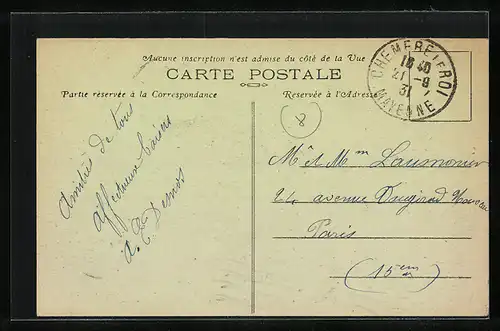 Aucune inscription n'est admise du côté de la Vue
CARTE POSTALE
Partie réservée à la Correspondance
Réservée à l'Adresse
CHEMERE LE ROI
18 40
21 -8
31
MAYENNE
8
Amitiés de tous
affectueux baisers
A. E. Demos
Mr et Mm Laumonier
24 avenue
Paris
(15em)